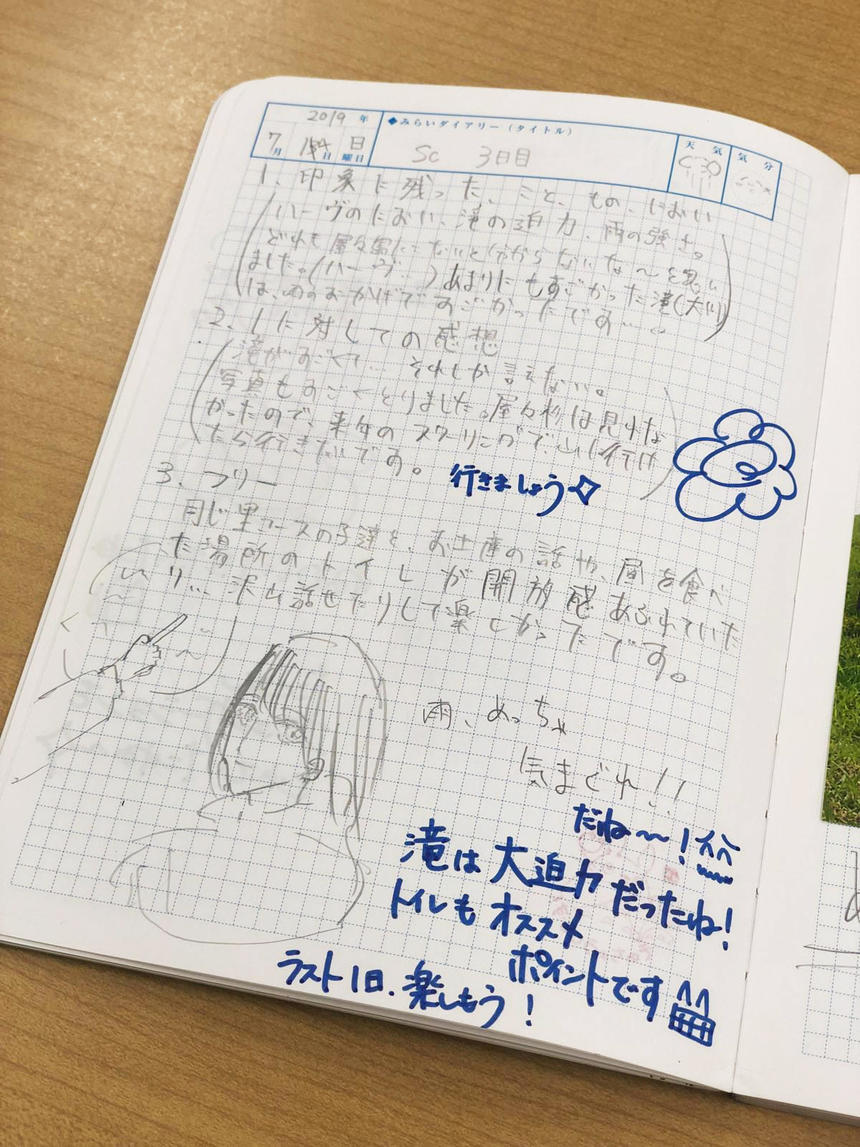 2019 年
7月 日 日曜日
◆みらいダイアリー(タイトル)
天気
気分
SC 3日目
1、印象に残った、こと、もの、におい
ハーヴのにおい、滝の迫力、雨の強さ。
どれも屋久島にこないと分からないな〜と思い
ました。(ハーヴ…)あまりにもすごかった滝(大川)
は、雨のおかげですごかったです…。
2、1に対しての感想
滝がすごくて… それしか言えない。
写真もすごくとりました。屋久杉は見れな
かったので、来年のスクーリングで、山に行け
たら行きたいです。
行きましょう
3、フリー
同じ里コースの子達と、お土産の話や、昼を食べ
た場所のトイレが開放感あふれていた
り… 沢山話せたりして楽しかったです。
雨、めっちゃ
気まぐれ!!
だね〜!
滝は大迫力だったね!
トイレもオススメ
ポイントです
ラスト1日、楽しもう!